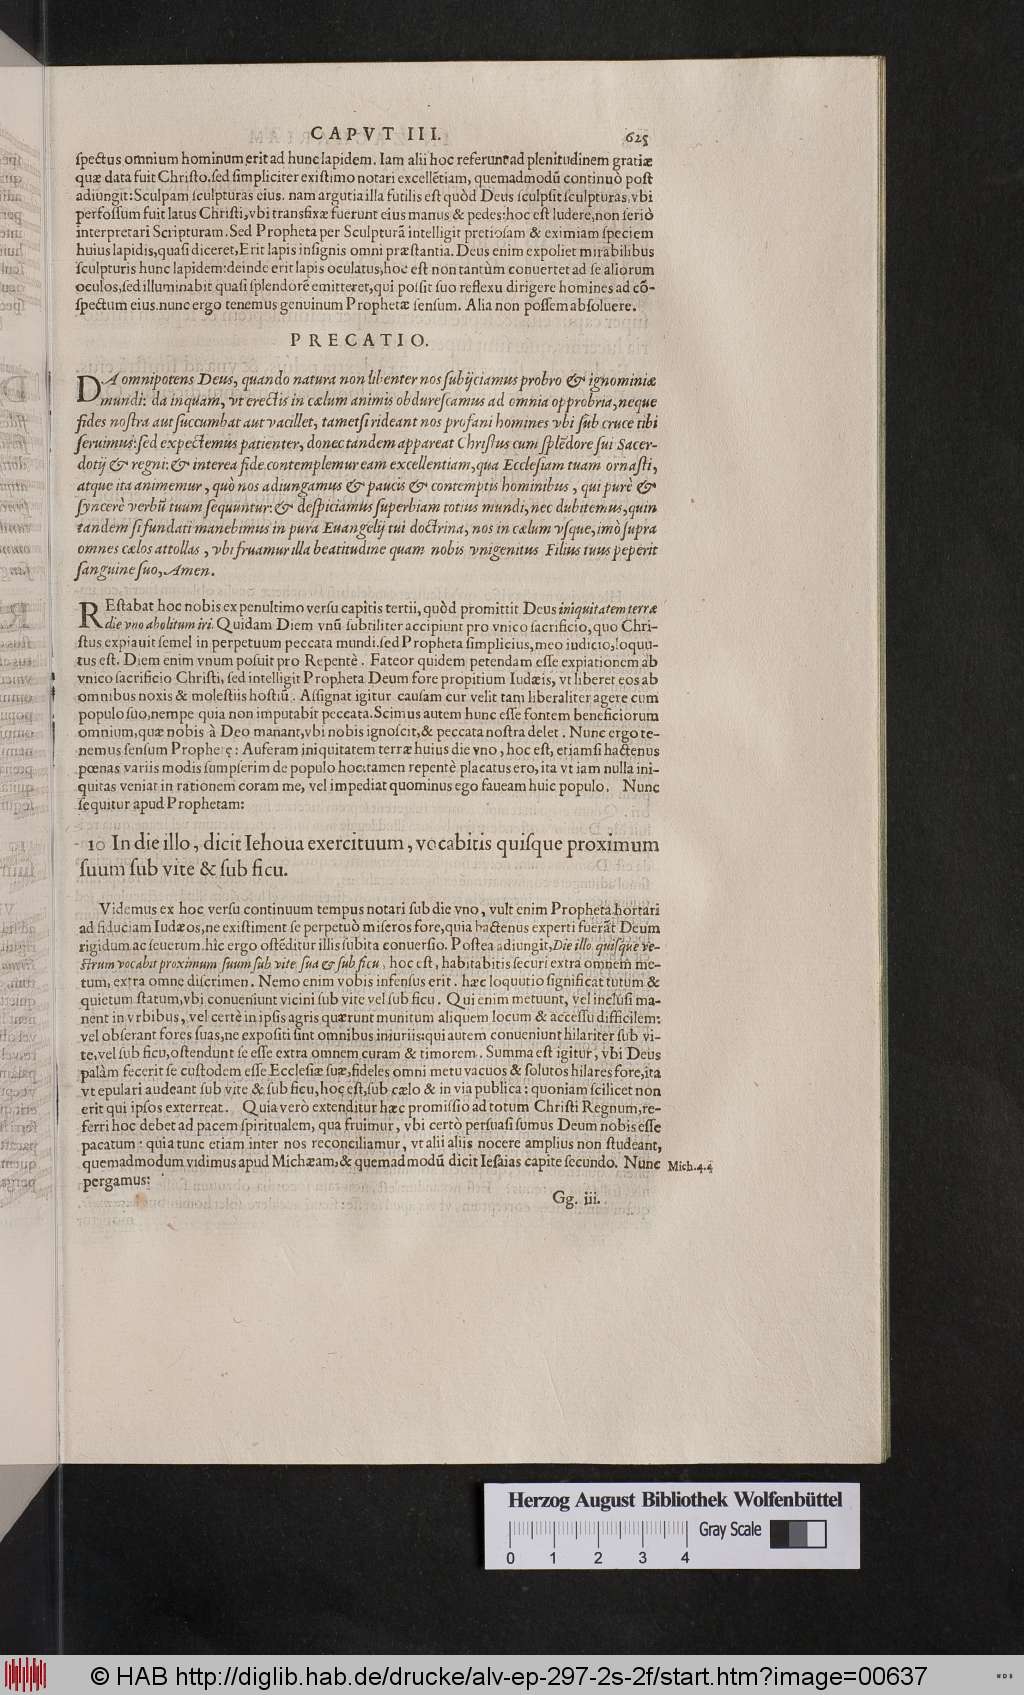 CAPVT III. 625
ſpectus omnium hominum erit ad hunc lapidem. Iam alii hoc referunt ad plenitudinem gratiæ
quæ data fuit Chriſto. ſed ſimpliciter exiſtimo notari excellētiam, quemadmodū continuò poſt
adiungit: Sculpam ſculpturas eius. nam argutia illa futilis eſt quòd Deus ſculpſit ſculpturas, vbi
perfoſſum fuit latus Chriſti, vbi transfixæ fuerunt eius manus & pedes: hoc eſt ludere, non ſeriò
interpretari Scripturam. Sed Propheta per Sculpturā intelligit pretioſam & eximiam ſpeciem
huius lapidis, quaſi diceret, Erit lapis inſignis omni præſtantia. Deus enim expoliet mirabilibus
ſculpturis hunc lapidem: deinde erit lapis oculatus, hoc eſt non tantùm conuertet ad ſe aliorum
oculos, ſed illuminabit quaſi ſplendorē emitteret, qui poſſit ſuo reflexu dirigere homines ad cō-
ſpectum eius. nunc ergo tenemus genuinum Prophetæ ſenſum. Alia non poſſem abſoluere.
PRECATIO.
DA omnipotens Deus, quando natura non libenter nos ſubijciamus probro & ignominiæ
mundi: da inquam, vt erectis in cælum animis obdureſcamus ad omnia opprobria, neque
fides noſtra aut ſuccumbat aut vacillet, tametſi rideant nos profani homines vbi ſub cruce tibi
ſeruimus: ſed expectemus patienter, donec tandem appareat Chriſtus cum ſplēdore ſui Sacer-
dotij & regni: & interea fide contemplemur eam excellentiam, qua Eccleſiam tuam ornaſti,
atque ita animemur, quò nos adiungamus & paucis & contemptis hominibus, qui purè &
ſyncerè verbū tuum ſequuntur: & deſpiciamus ſuperbiam totius mundi, nec dubitemus, quin
tandem ſi fundati manebimus in pura Euangelij tui doctrina, nos in cælum vſque, imò ſupra
omnes cælos attollas, vbi fruamur illa beatitudine quam nobis vnigenitus Filius tuus peperit
ſanguine ſuo, Amen.
REſtabat hoc nobis ex penultimo verſu capitis tertii, quòd promittit Deus iniquitatem terræ
die vno abolitum iri. Quidam Diem vnū ſubtiliter accipiunt pro vnico ſacrificio, quo Chri-
ſtus expiauit ſemel in perpetuum peccata mundi. ſed Propheta ſimplicius, meo iudicio, loquu-
tus eſt. Diem enim vnum poſuit pro Repentè. Fateor quidem petendam eſſe expiationem ab
vnico ſacrificio Chriſti, ſed intelligit Propheta Deum fore propitium Iudæis, vt liberet eos ab
omnibus noxis & moleſtiis hoſtiū. Aſſignat igitur cauſam cur velit tam liberaliter agere cum
populo ſuo, nempe quia non imputabit peccata. Scimus autem hunc eſſe fontem beneficiorum
omnium, quæ nobis à Deo manant, vbi nobis ignoſcit, & peccata noſtra delet. Nunc ergo te-
nemus ſenſum Prophetę: Auferam iniquitatem terræ huius die vno, hoc eſt, etiamſi hactenus
pœnas variis modis ſumpſerim de populo hoc: tamen repentè placatus ero, ita vt iam nulla ini-
quitas veniat in rationem coram me, vel impediat quominus ego faueam huic populo. Nunc
ſequitur apud Prophetam:
10 In die illo, dicit Iehoua exercituum, vocabitis quiſque proximum
ſuum ſub vite & ſub ficu.
Videmus ex hoc verſu continuum tempus notari ſub die vno, vult enim Propheta hortari
ad fiduciam Iudæos, ne exiſtiment ſe perpetuò miſeros fore, quia hactenus experti fuerāt Deum
rigidum ac ſeuerum. hic ergo oſtēditur illis ſubita conuerſio. Poſtea adiungit, Die illo quiſque ve-
ſtrum vocabit proximum ſuum ſub vite ſua & ſub ficu, hoc eſt, habitabitis ſecuri extra omnem me-
tum, extra omne diſcrimen. Nemo enim vobis infenſus erit. hæc loquutio ſignificat tutum &
quietum ſtatum, vbi conueniunt vicini ſub vite vel ſub ficu. Qui enim metuunt, vel incluſi ma-
nent in vrbibus, vel certè in ipſis agris quærunt munitum aliquem locum & acceſſu difficilem:
vel obſerant fores ſuas, ne expoſiti ſint omnibus iniuriis: qui autem conueniunt hilariter ſub vi-
te, vel ſub ficu, oſtendunt ſe eſſe extra omnem curam & timorem. Summa eſt igitur, vbi Deus
palàm fecerit ſe cuſtodem eſſe Eccleſiæ ſuæ, fideles omni metu vacuos & ſolutos hilares fore, ita
vt epulari audeant ſub vite & ſub ficu, hoc eſt, ſub cælo & in via publica: quoniam ſcilicet non
erit qui ipſos exterreat. Quia verò extenditur hæc promiſſio ad totum Chriſti Regnum, re-
ferri hoc debet ad pacem ſpiritualem, qua fruimur, vbi certò perſuaſi ſumus Deum nobis eſſe
pacatum: quia tunc etiam inter nos reconciliamur, vt alii aliis nocere amplius non ſtudeant,
quemadmodum vidimus apud Michæam, & quemadmodū dicit Ieſaias capite ſecundo. Nunc Mich. 4. 4
pergamus:
Gg. iii.
Herzog August Bibliothek Wolfenbüttel
Gray Scale
0 1 2 3 4
© HAB http://diglib.hab.de/drucke/alv-ep-297-2s-2f/start.htm?image=00637